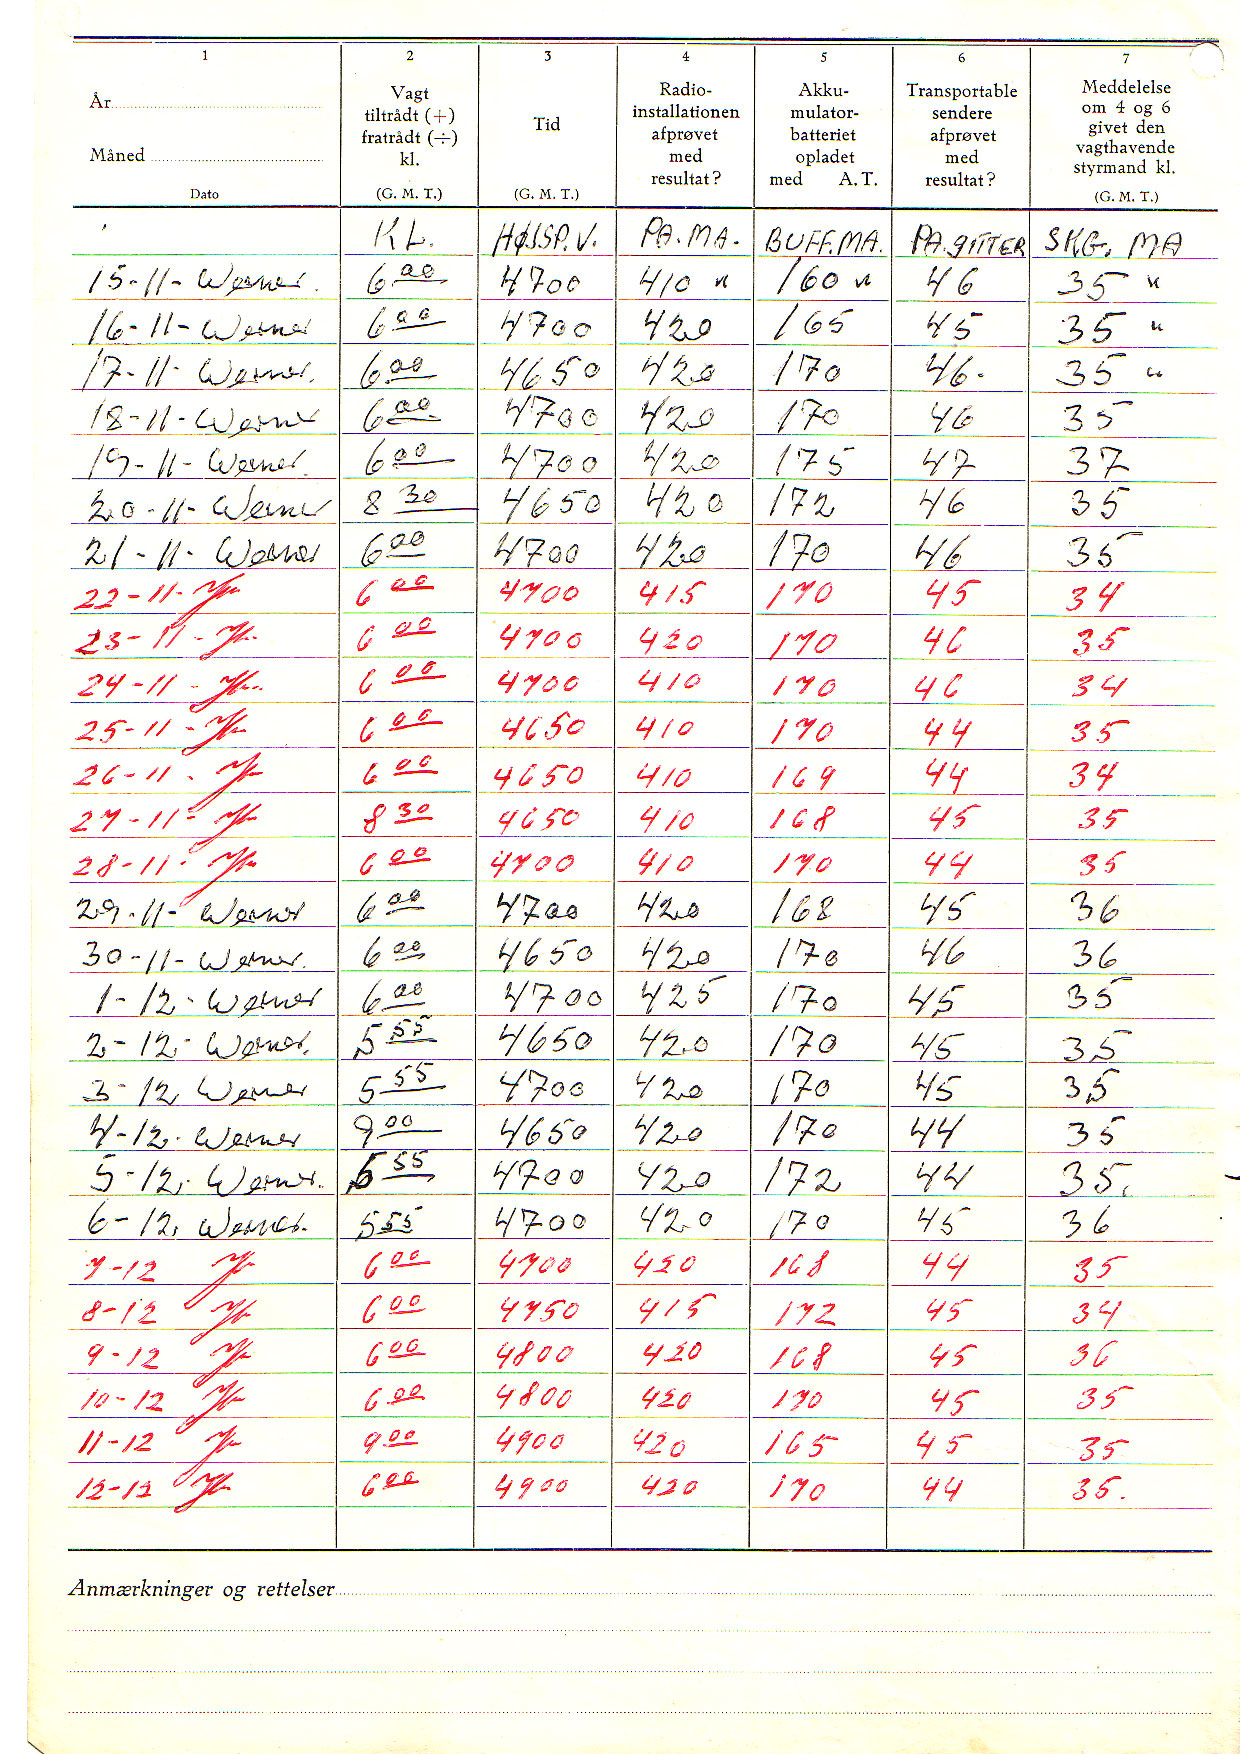 1 2 3 4 5 6 7
År Måned Dato
Vagt tiltrådt (+) fratrådt (÷) kl. (G. M. T.)
Tid (G. M. T.)
Radio- installationen afprøvet med resultat?
Akku- mulator- batteriet opladet med A. T.
Transportable sendere afprøvet med resultat?
Meddelelse om 4 og 6 givet den vagthavende styrmand kl. (G. M. T.)
KL. HØJSP.V. PA.MA. BUFF.MA. PA.GITTER SKG. MA
15-11- Werner. 6 00 4700 410 " 160 " 46 35 "
16-11- Werner 6 00 4700 420 165 45 35 "
17-11- Werner. 6 00 4650 420 170 46. 35 "
18-11- Werner 6 00 4700 420 170 46 35
19-11- Werner. 6 00 4700 420 175 47 37
20-11- Werner 8 30 4650 420 172 46 35
21-11- Werner 6 00 4700 420 170 46 35
22-11- 6 00 4700 415 170 45 34
23-11- 6 00 4700 420 170 46 35
24-11- 6 00 4700 410 170 46 34
25-11- 6 00 4650 410 170 44 35
26-11- 6 00 4650 410 169 44 34
27-11- 8 30 4650 410 168 45 35
28-11- 6 00 4700 410 170 44 35
29-11- Werner 6 00 4700 420 168 45 36
30-11- Werner. 6 00 4650 420 170 46 36
1-12- Werner 6 00 4700 425 170 45 35
2-12- Werner. 5 55 4650 420 170 45 35
3-12, Werner 5 55 4700 420 170 45 35
4-12. Werner 9 00 4650 420 170 44 35
5-12, Werner. 5 55 4700 420 172 44 35.
6-12, Werner. 5 55 4700 420 170 45 36
7-12 6 00 4700 420 168 44 35
8-12 6 00 4750 415 172 45 34
9-12 6 00 4800 420 168 45 36
10-12 6 00 4800 420 170 45 35
11-12 9 00 4900 420 165 45 35
12-12 6 00 4900 420 170 44 35.
Anmærkninger og rettelser